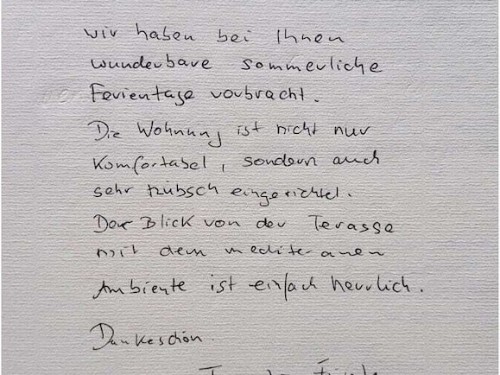 wir haben bei Ihnen
wunderbare sommerliche
Ferientage verbracht.
Die Wohnung ist nicht nur
Komfortabel, sondern auch
sehr hübsch eingerichtet.
Der Blick von der Terasse
mit dem mediteranen
Ambiente ist einfach herrlich.
Dankeschön